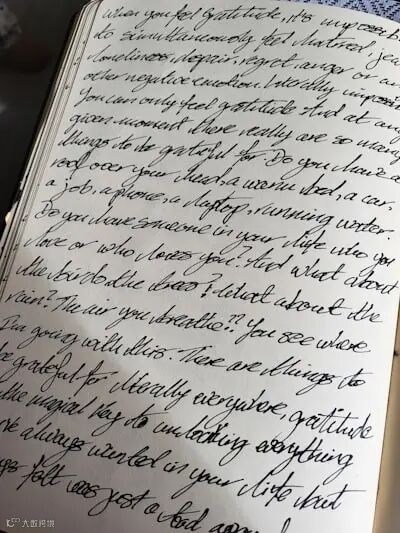 When you feel gratitude, it's impossib
to simultaneously feel hatred, jea
loneliness, despair, regret, anger or an
other negative emotion. Literally impossi
You can only feel gratitude. And at any
given moment there really are so many
things to be grateful for. Do you have a
roof over your head, a warm bed, a car,
a job, a phone, a laptop, running water.
Do you have someone in your life who you
love or who loves you? And what about
the birds the trees? What about the
rain? The air you breathe?? You see where
I'm going with this. There are things to
be grateful for literally everywhere, gratitude
the magical key to unlocking everything
've always wanted in your life but
felt was just a bad
大数跨境